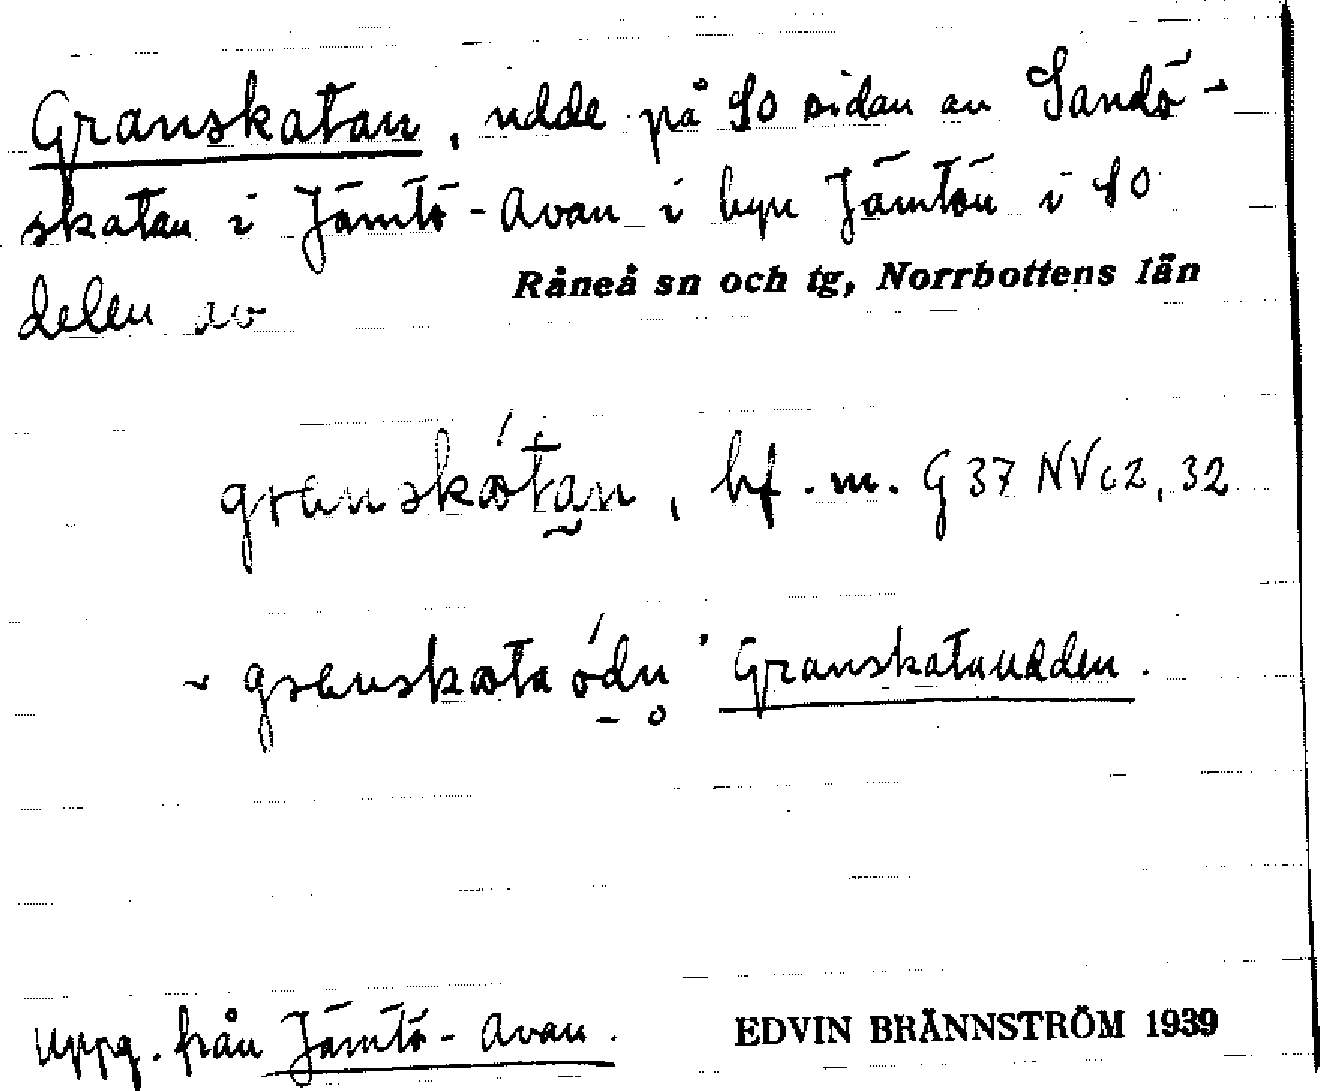 Granskatan, udde på SO sidan av Sandö-
skatan i Jämtö-Avan i byn Jämtön i SO
delen av Råneå sn och tg, Norrbottens län
granskatan, bf. m. G 37 NV c2, 32
~ granskataödn 'Granskataudden.
Uppg. från Jämtö-Avan. EDVIN BRÄNNSTRÖM 1939